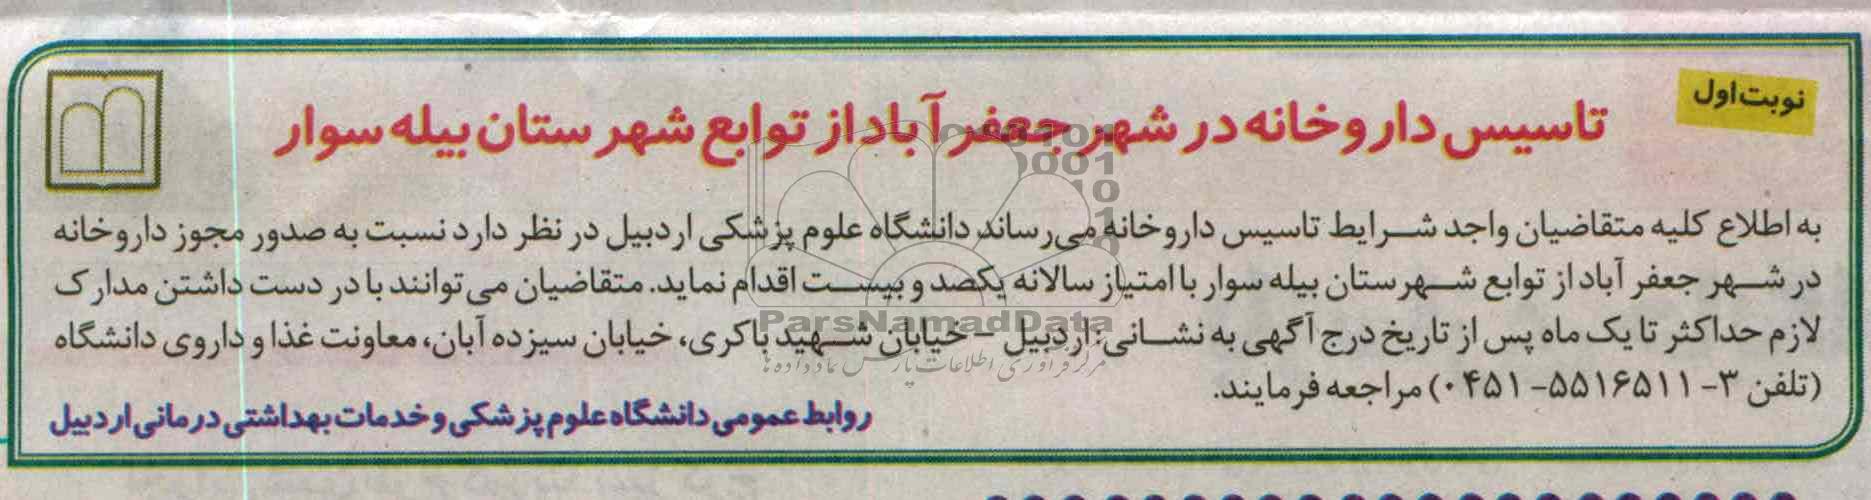 نوبت اول
تاسیس داروخانه در شهر جعفر آباد از توابع شهرستان بیله سوار
به اطلاع کلیه متقاضیان واجد شرایط تاسیس داروخانه می‌رساند، دانشگاه علوم پزشکی اردبیل در نظر دارد نسبت به صدور مجوز داروخانه
در شهر جعفر آباد از توابع شهرستان بیله سوار با امتیاز سالانه یکصد و بیست اقدام نماید. متقاضیان می‌توانند با در دست داشتن مدارک
لازم حداکثر تا یک ماه پس از تاریخ درج آگهی به نشانی: اردبیل – خیابان شهید باکری، خیابان سیزده آبان، معاونت غذا و داروی دانشگاه
(تلفن ۳- ۵۵۱۶۵۱۱-۰۴۵۱) مراجعه فرمایند.
روابط عمومی دانشگاه علوم پزشکی و خدمات بهداشتی درمانی اردبیل
ParsNamadData
مرکز فرآوری اطلاعات پارس نماد داده ها